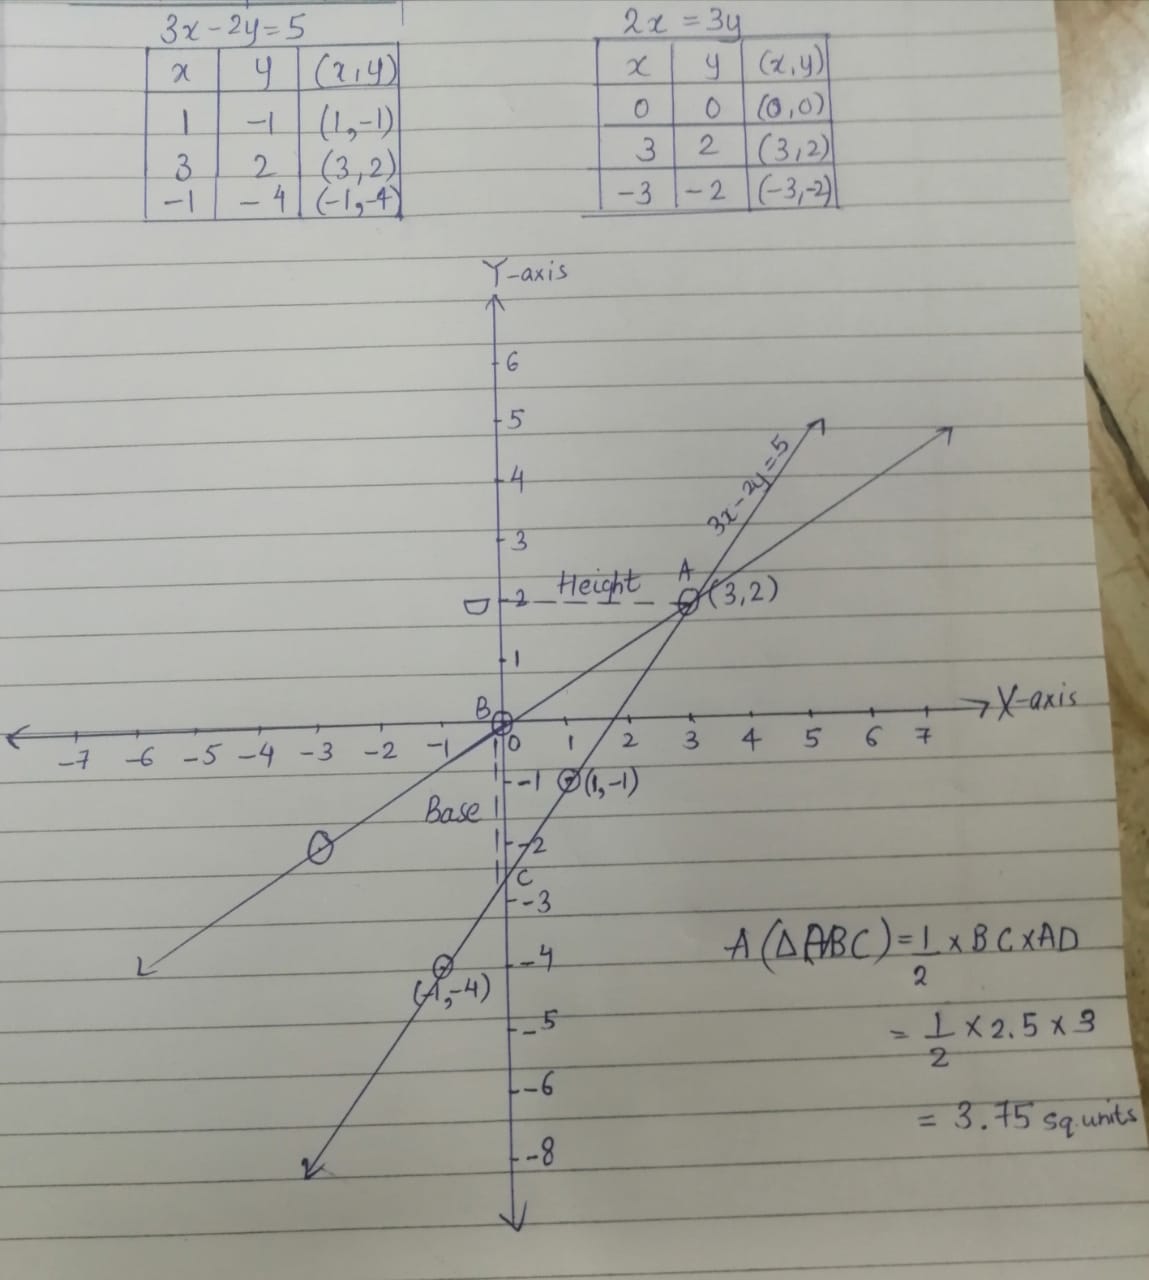 3x-2y=5
x y (x,y)
1 -1 (1,-1)
3 2 (3,2)
-1 -4 (-1,-4)
2x=3y
x y (x,y)
0 0 (0,0)
3 2 (3,2)
-3 -2 (-3,-2)
Y-axis
6
5
4
3x-2y=5
3
Height A
D 2 (3,2)
1
B X-axis
-7 -6 -5 -4 -3 -2 -1 0 1 2 3 4 5 6 7
-1 (1,-1)
Base
-2
C
-3
-4
(-1,-4)
-5
-6
-8
A(ΔABC)=1/2×BC×AD
=1/2×2.5×3
=3.75 sq.units